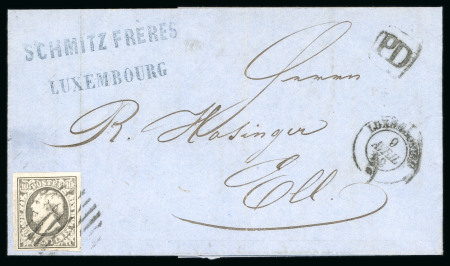 SCHMITZ FRERES
LUXEMBOURG
PD
Herrn
R. Hosinger
Ell.
LUXEMBOURG
9
POSTES